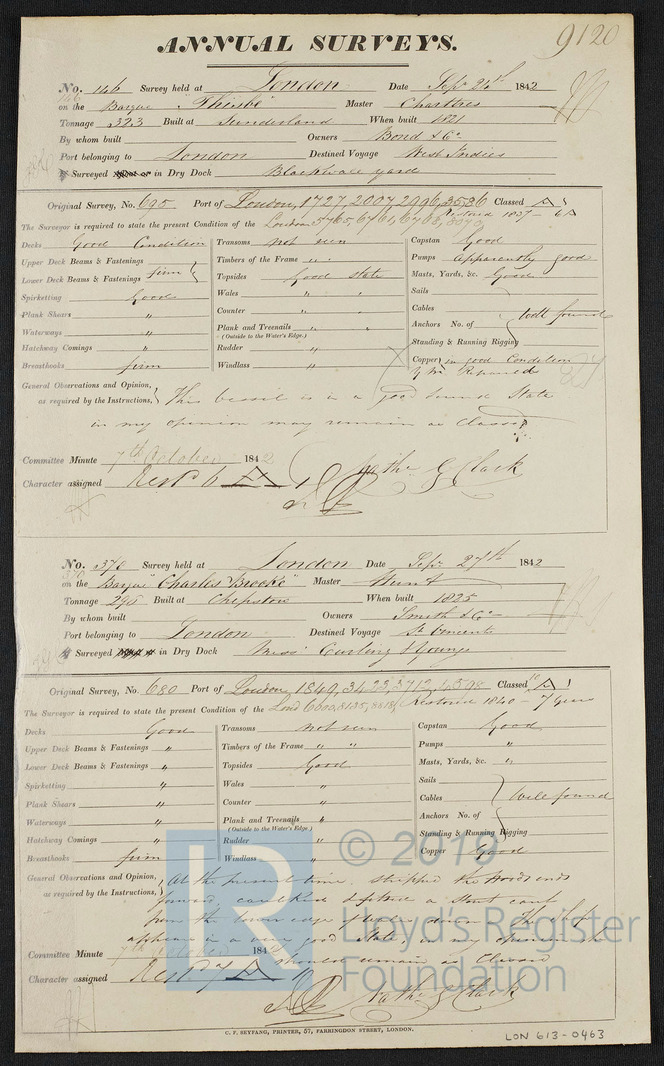 9120
ANNUAL SURVEYS.
No. 146 Survey held at London Date Sepr 24th 1842
146
on the Barque "Thisbe" Master Charttres
Tonnage 323 Built at Sunderland When built 1821
By whom built Owners Bond & Co
Port belonging to London Destined Voyage West Indies
Surveyed in Dry Dock Blackwall yard
Original Survey, No. 695 Port of London, 1727, 2007, 2996, 3536 Classed A 1
The Surveyor is required to state the present Condition of the London 5765, 6761, 6763, Restored 1837 - 6A
Decks Good Condition Transoms not seen Capstan Good
Upper Deck Beams & Fastenings } firm Timbers of the Frame " " Pumps apparently good
Lower Deck Beams & Fastenings Topsides Good state Masts, Yards, &c. Good
Spirketting Good Wales " " Sails
Plank Shears " Counter " " Cables } well found
Waterways " Plank and Treenails " " Anchors No. of
(Outside to the Water's Edge.)
Hatchway Comings " Rudder " Standing & Running Rigging
Breasthooks firm Windlass " Copper } in good Condition
Repaired
General Observations and Opinion, } This vessel is in a good sound State
as required by the Instructions,
in my opinion may remain as Classed
Committee Minute 7th October 1842
Character assigned Restd 6 A 1 Nathl G Clark
No. 370 Survey held at London Date Sepr 27th 1842
370
on the Barque "Charles Brooke" Master Hunt
Tonnage 295 Built at Chepstow When built 1825
By whom built Owners Smith & Co
Port belonging to London Destined Voyage St Vincents
Surveyed in Dry Dock Messrs Curling & Youngs
Original Survey, No. 680 Port of London, 1849, 3423, 3712, 4598 Classed 10 A 1
The Surveyor is required to state the present Condition of the Lond 6600, 8135, 8818 Restored 1840 - 7 years
Decks Good Transoms not seen Capstan Good
Upper Deck Beams & Fastenings " Timbers of the Frame " " Pumps "
Lower Deck Beams & Fastenings " Topsides Good Masts, Yards, &c. "
Spirketting " Wales " Sails
Plank Shears " Counter " Cables } Well found
Waterways " Plank and Treenails " Anchors No. of
(Outside to the Water's Edge)
Hatchway Comings " Rudder " Standing & Running Rigging
Breasthooks firm Windlass " Copper Good
General Observations and Opinion, } At the present time, stripped the Woods ends
as required by the Instructions, forward, caulked & fitted a stout cant
from the lower edge of Wales down. The ship
appears in a very good State, in my opinion she
should remain as Classed
Committee Minute 7th October 1842
Character assigned Restd 7 A 1
Nathl G Clark
C. F. SEYFANG, PRINTER, 57, FARRINGDON STREET, LONDON.
LON 613-0463
LR
© 2019
Lloyd's Register
Foundation